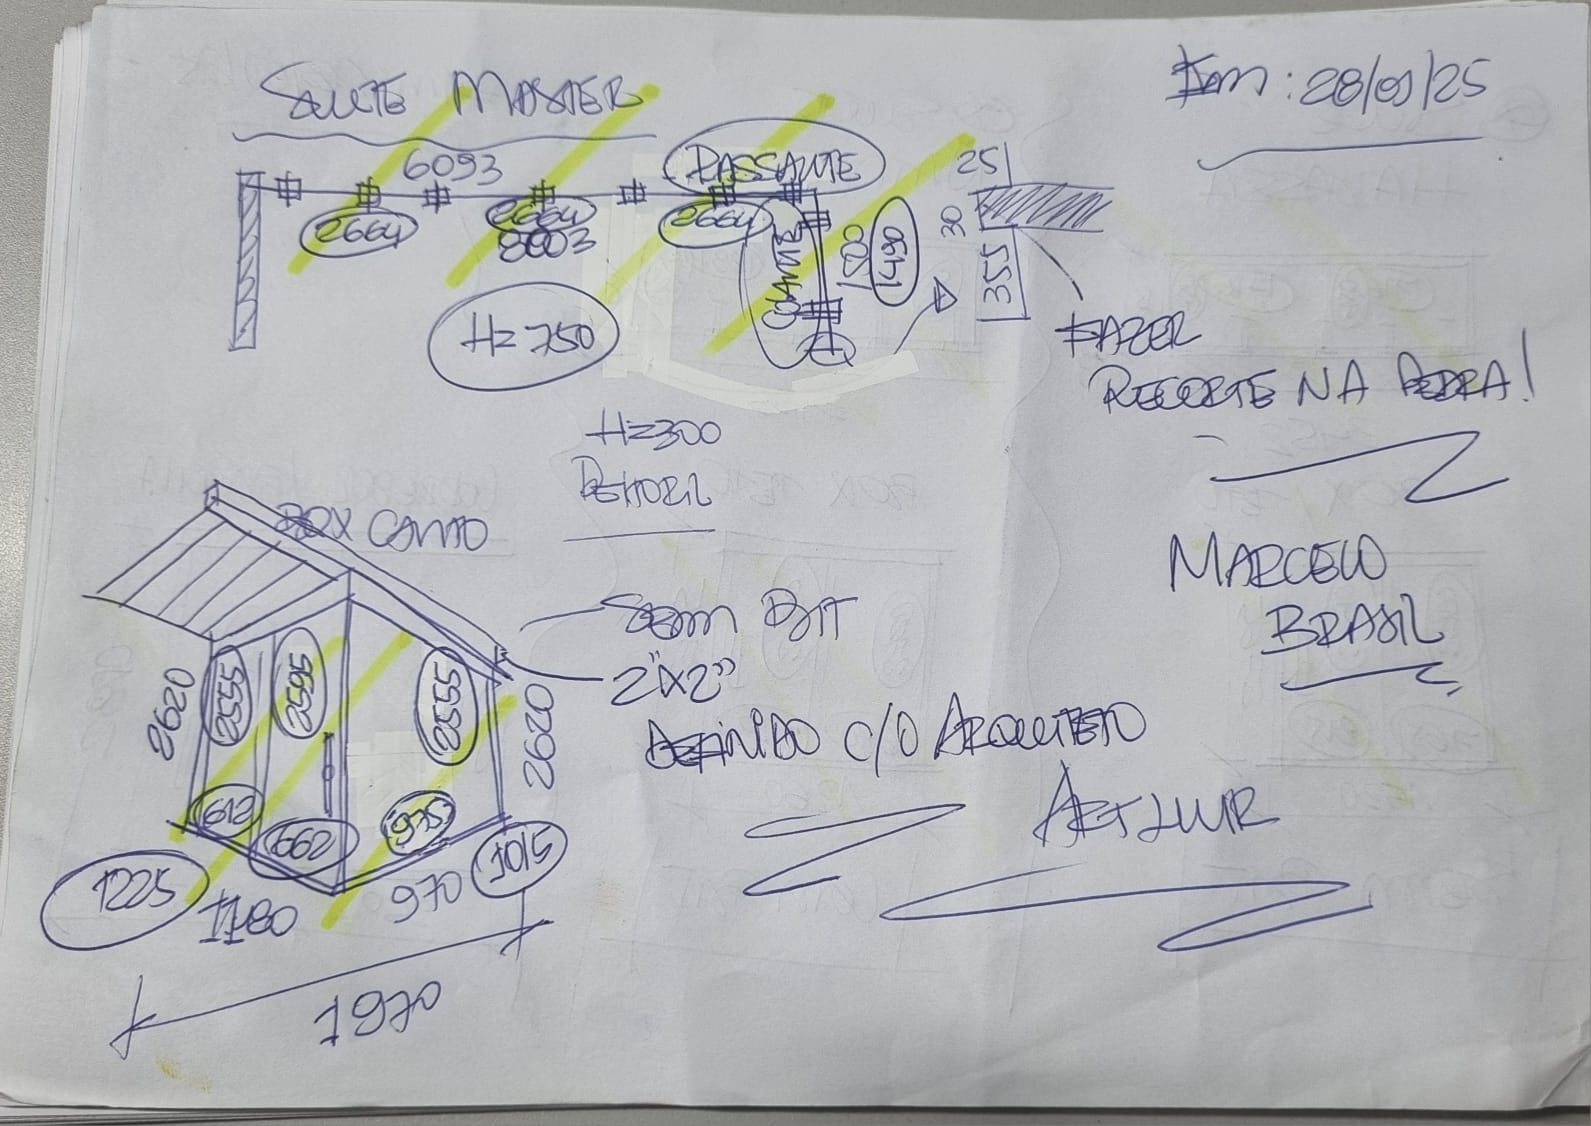 SUITE MASTER
Em: 28/01/25
6093
PASSANTE
25
2664
2664
2664
8003
COLANTE
1500
1490
30
355
H=750
FAZER
RECORTE NA PEDRA!
H=300
PEITORIL
BOX CANTO
MARCELO
BRASIL
SEM BIT
2"x2"
DEFINIDO C/O ARQUITETO
ARTHUR
2620
2555
2595
2555
2620
612
662
975
1015
1225
1180
970
1970